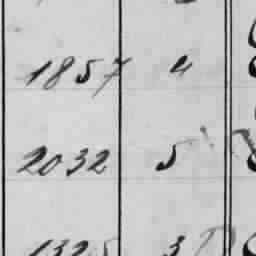 1857 4
2032 5
1325 3